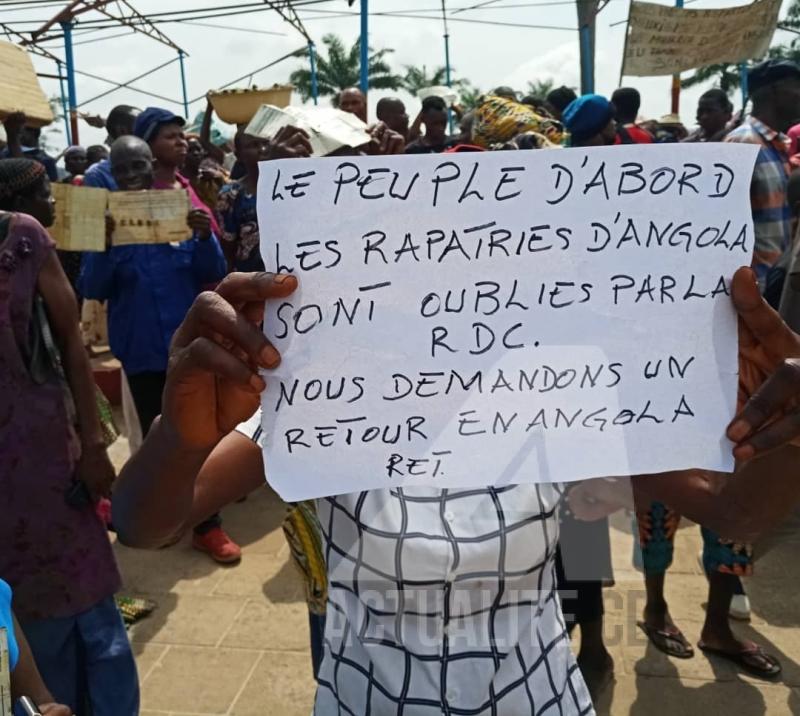 LE PEUPLE D'ABORD
LES RAPATRIES D'ANGOLA
SONT OUBLIES PAR LA
RDC.
NOUS DEMANDONS UN
RETOUR EN ANGOLA
RET.
ACTUALITE.CD